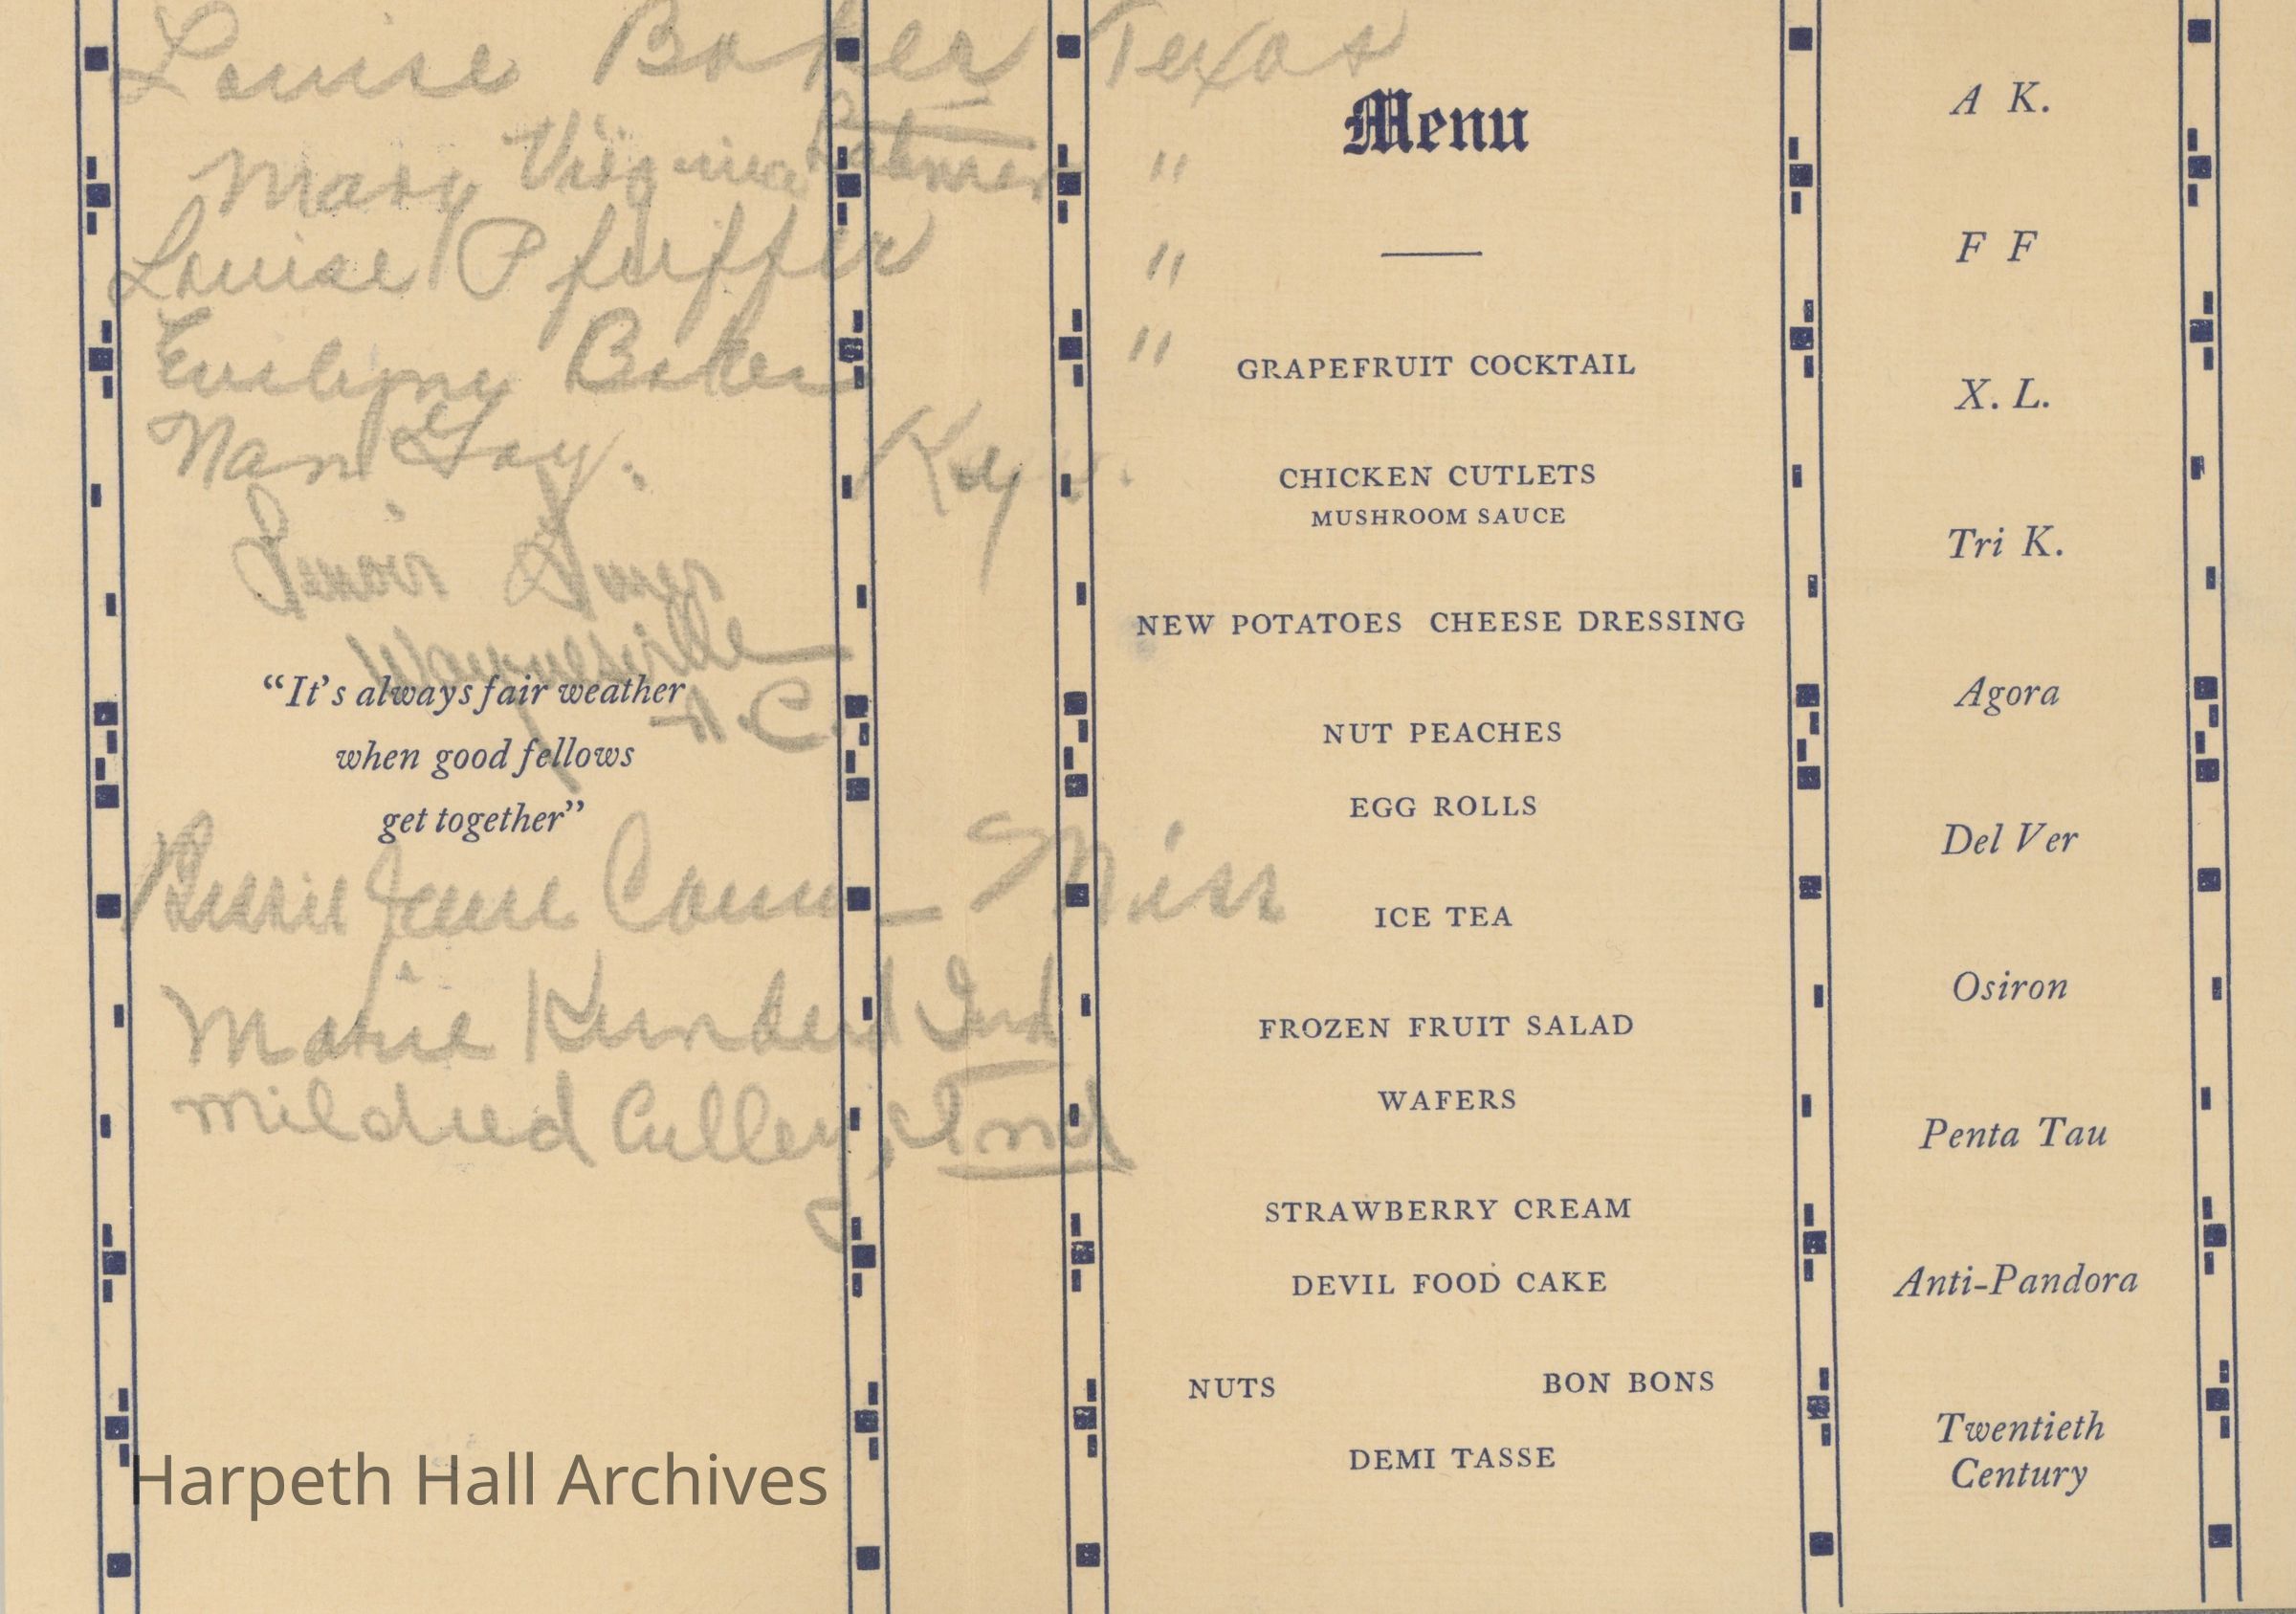 Louise Baker Texas
Mary Virginia "
Louise Pfuffer "
Baker "
Nan Gay. Ky.
Lenoir
Waynesville
N.C.
"It's always fair weather
when good fellows
get together"
Jane Miss
Marie Kunderd Ind
Mildred Culley, Ind
Harpeth Hall Archives
Menu
GRAPEFRUIT COCKTAIL
CHICKEN CUTLETS
MUSHROOM SAUCE
NEW POTATOES CHEESE DRESSING
NUT PEACHES
EGG ROLLS
ICE TEA
FROZEN FRUIT SALAD
WAFERS
STRAWBERRY CREAM
DEVIL FOOD CAKE
NUTS BON BONS
DEMI TASSE
A K.
F F
X. L.
Tri K.
Agora
Del Ver
Osiron
Penta Tau
Anti-Pandora
Twentieth
Century